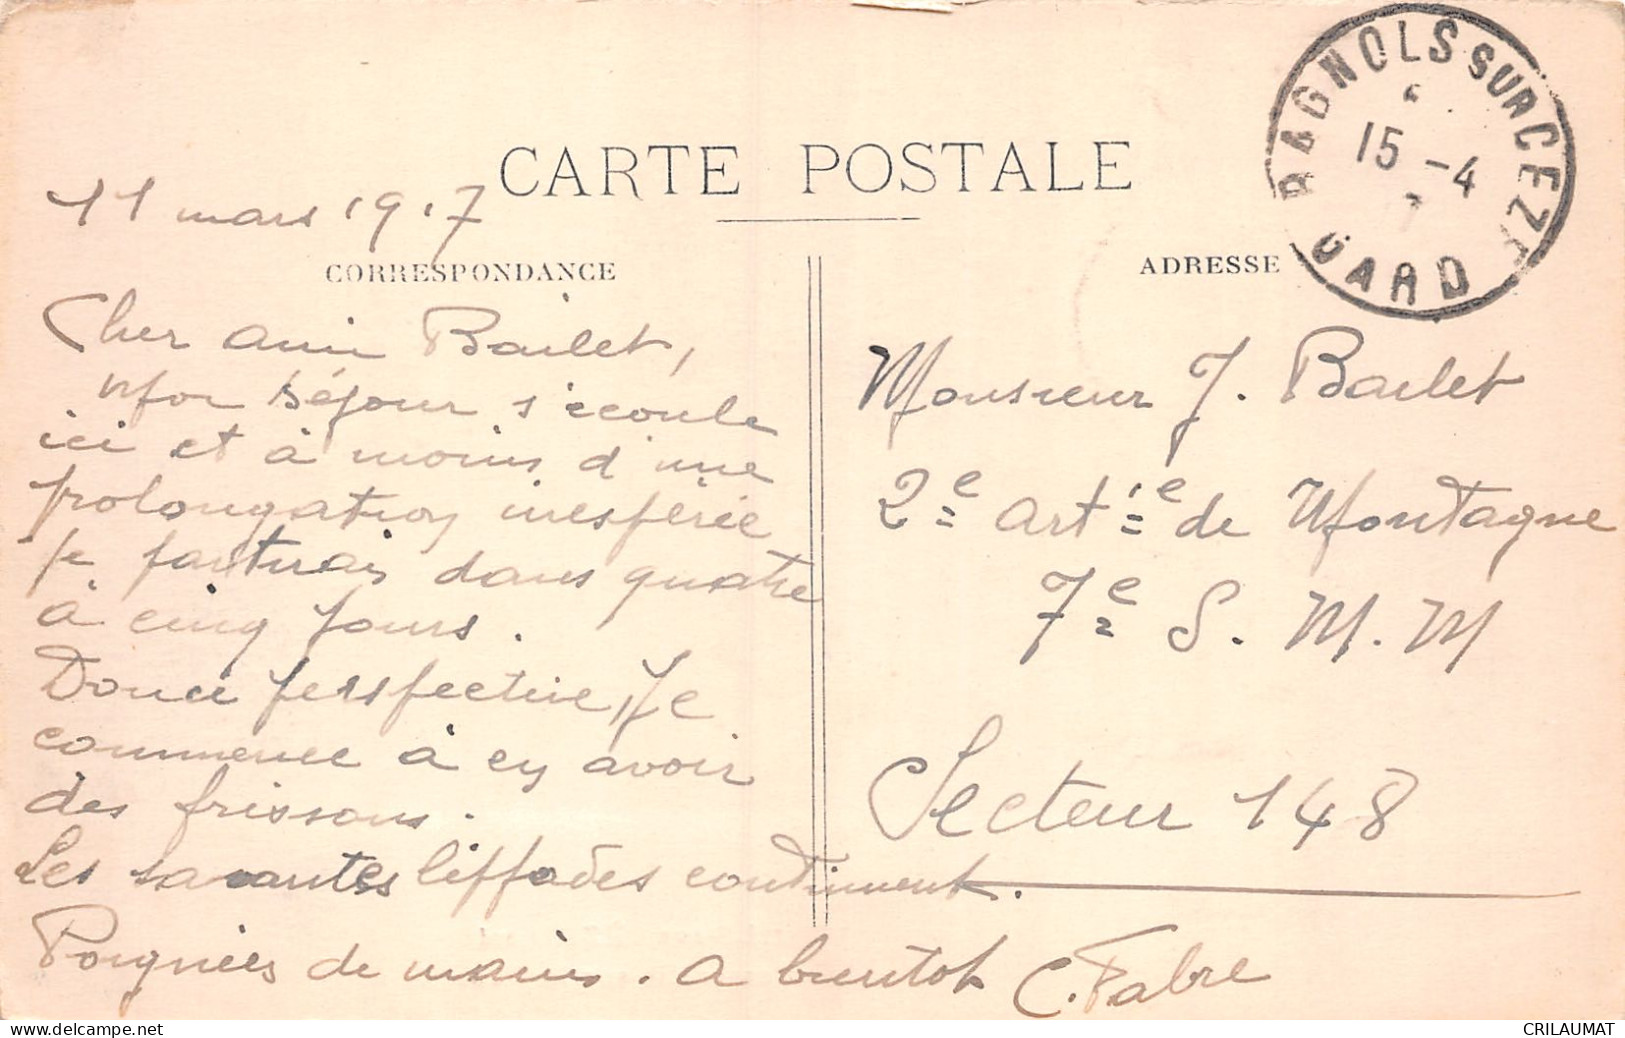 CARTE POSTALE
11 mars 1917
CORRESPONDANCE
Cher ami Bailet,
Mon séjour s'écoule
ici et à moins d'une
prolongation inespérée
je partirais dans quatre
à cinq jours.
Douce perspective, Je
commence à en avoir
des frissons.
Les savantes continuent.
Poignées de mains. A bientot C. Fabre
BAGNOLS SUR CEZE
15 -4
GARD
ADRESSE
Monsieur J. Bailet
2e Artie de Montagne
7e S. M. M
Secteur 148
delcampe.net
CRILAUMAT